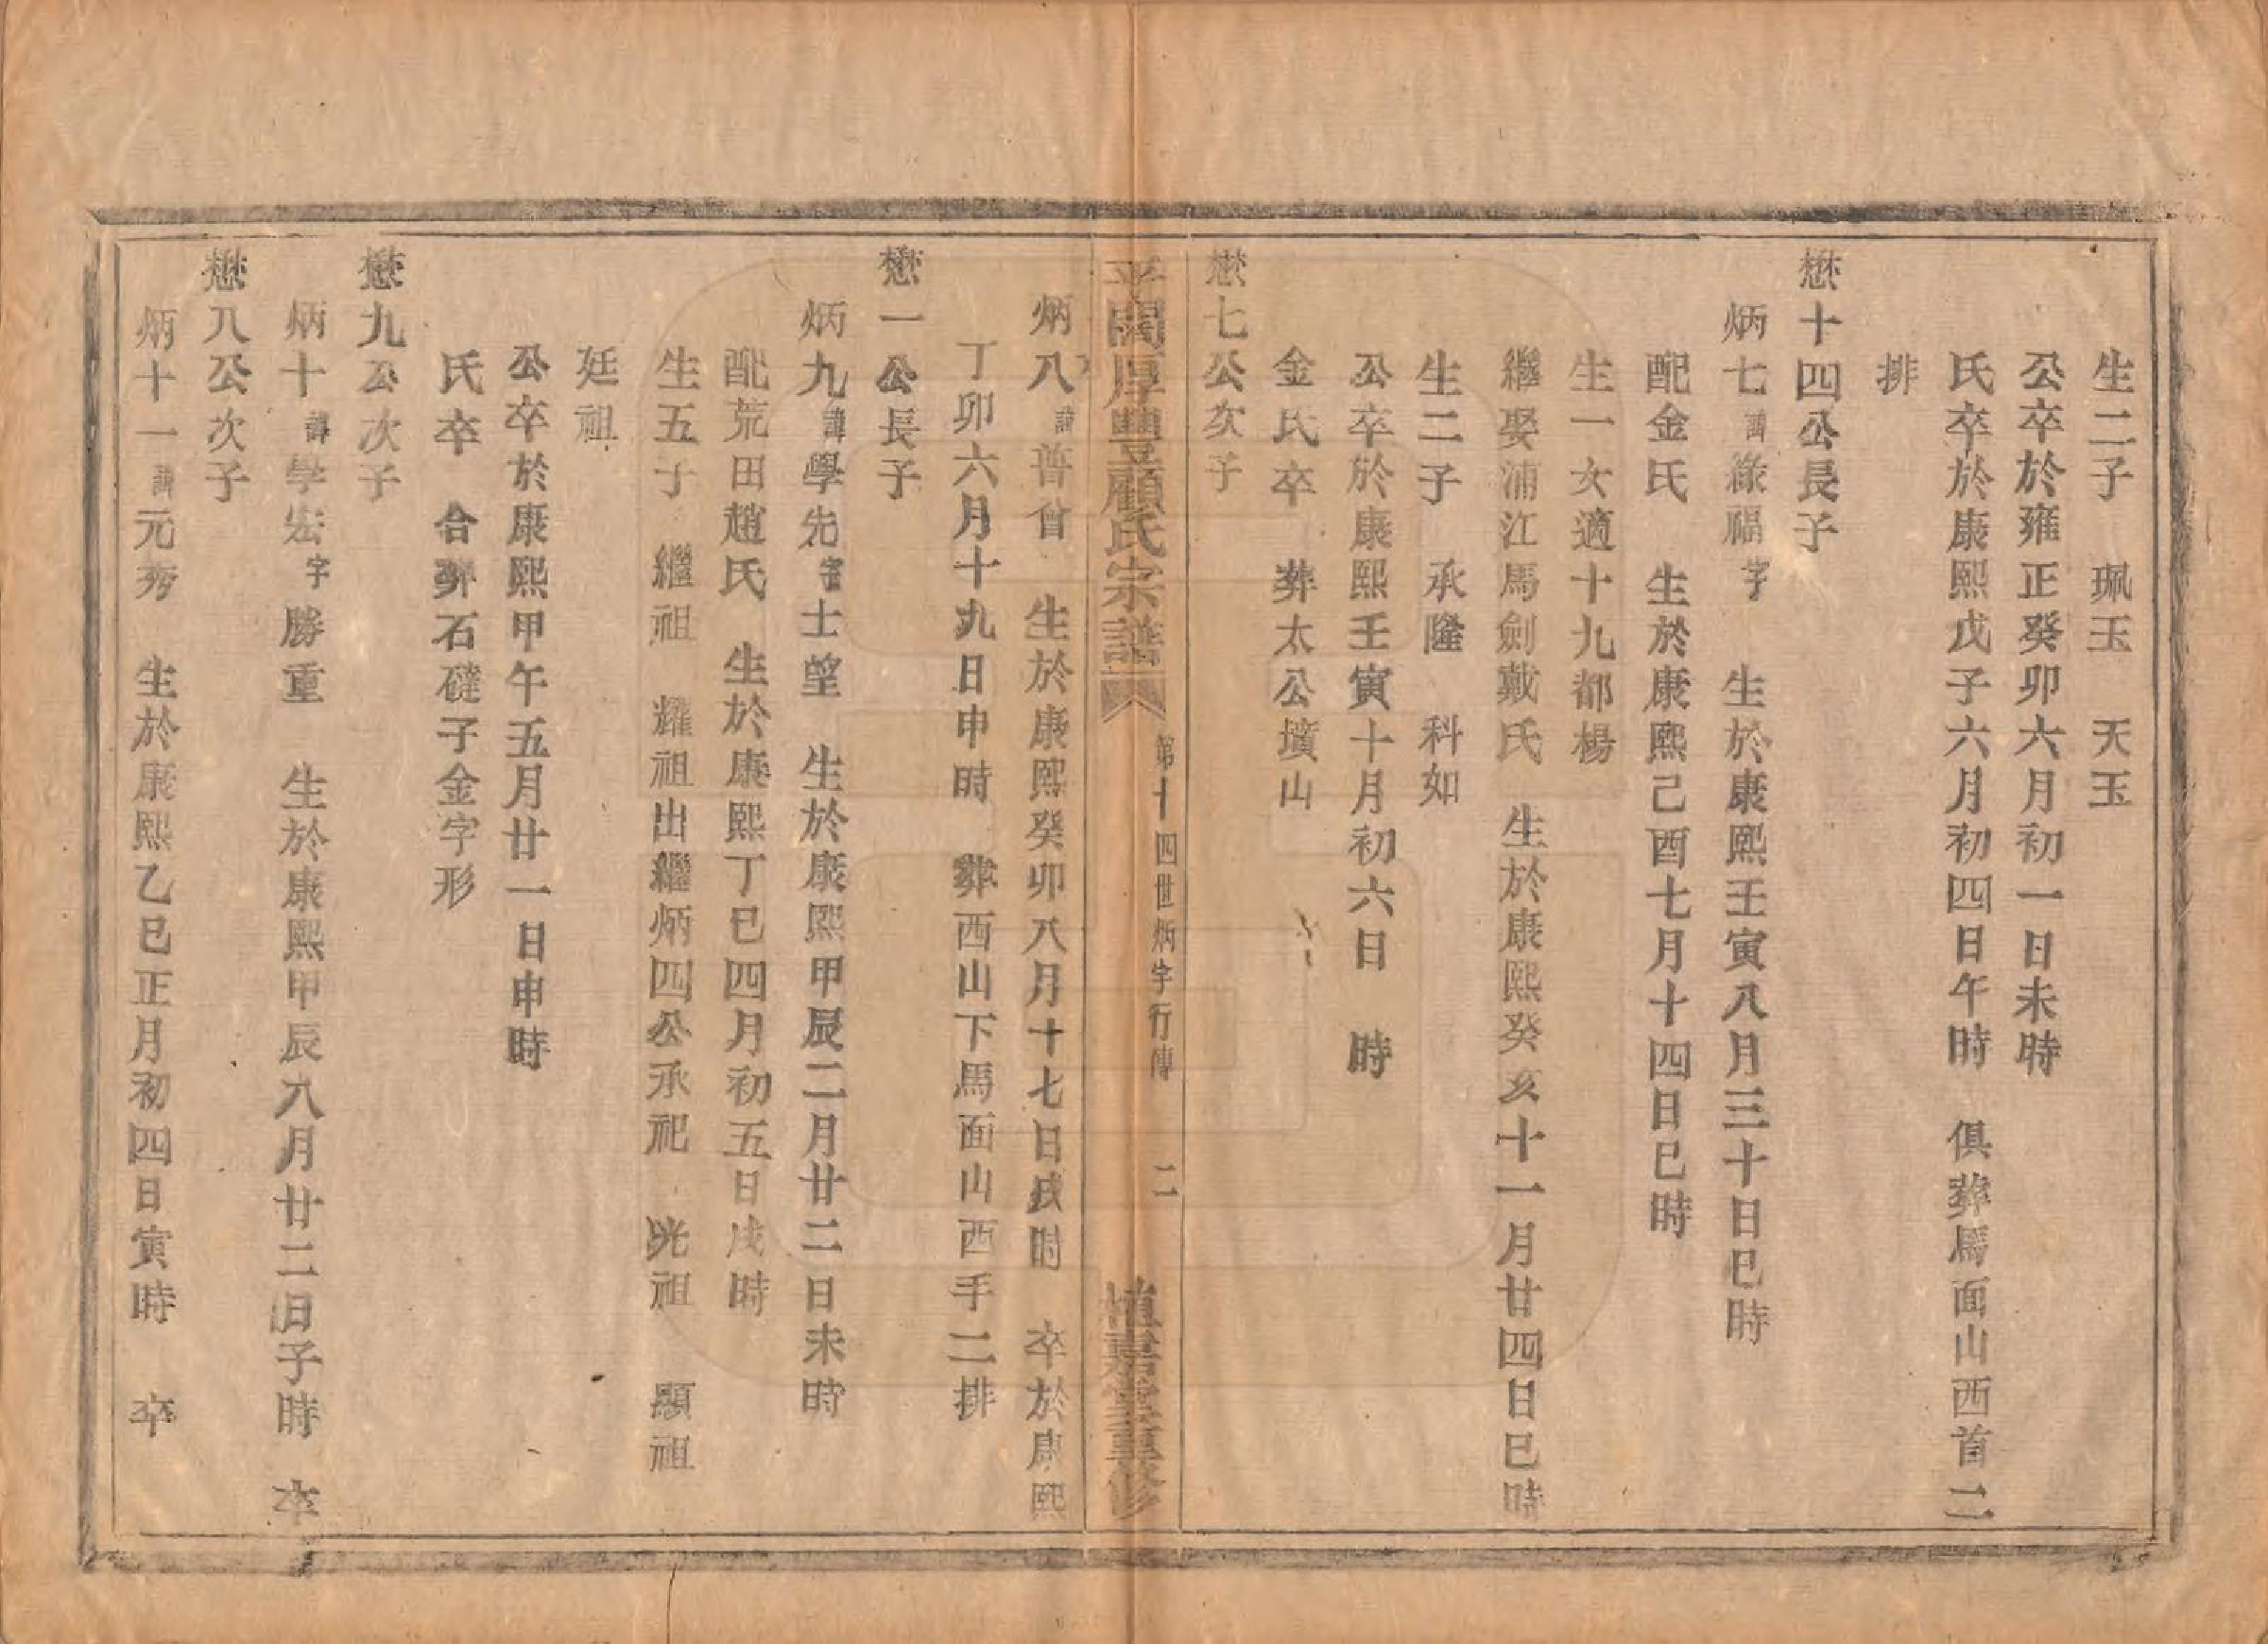 生二子　珮玉　天玉
公卒於雍正癸卯六月初一日未時
氏卒於康熙戊子六月初四日午時　俱葬馬面山西首二
排
懋十四公長子
炳七諱祿福字　生於康熙壬寅八月三十日巳時
配金氏　生於康熙己酉七月十四日巳時
生一女適十九都楊
繼娶浦江馬劍戴氏　生於康熙癸亥十一月廿四日巳時
生二子　承隆　科如
公卒於康熙壬寅十月初六日　時
金氏卒　葬太公墳山
懋七公次子
平闊厚豐顧氏宗譜　第十四世炳字行傳　二　嘉堂重修
炳八諱普會　生於康熙癸卯八月十七日戌時　卒於康熙
丁卯六月十九日申時　葬西山下馬面山西手二排
懋一公長子
炳九諱學先字士望　生於康熙甲辰二月廿二日未時
配荒田趙氏　生於康熙丁巳四月初五日戌時
生五子　繼祖　耀祖出繼炳四公承祀　光祖　顯祖
廷祖
公卒於康熙甲午五月廿一日申時
氏卒　合葬石磋子金字形
懋九公次子
炳十諱學宏字勝重　生於康熙甲辰八月廿二日子時　卒
懋八公次子
炳十一諱元秀　生於康熙乙巳正月初四日寅時　卒